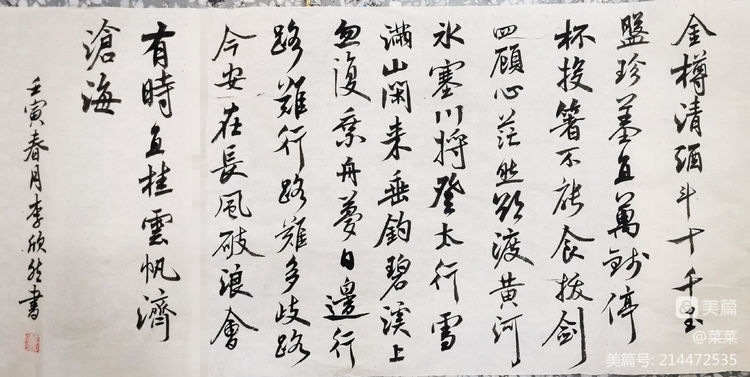 金樽清酒斗十千玉
盤珍羞直萬錢停
杯投箸不能食拔劍
四顧心茫然欲渡黄河
冰塞川將登太行雪
滿山閑来垂釣碧溪上
忽復乘舟夢日邊行
路難行路難多歧路
今安在長風破浪會
有時直挂雲帆濟
滄海
壬寅春月李欣然書
美篇
@菜菜
美篇号: 214472535